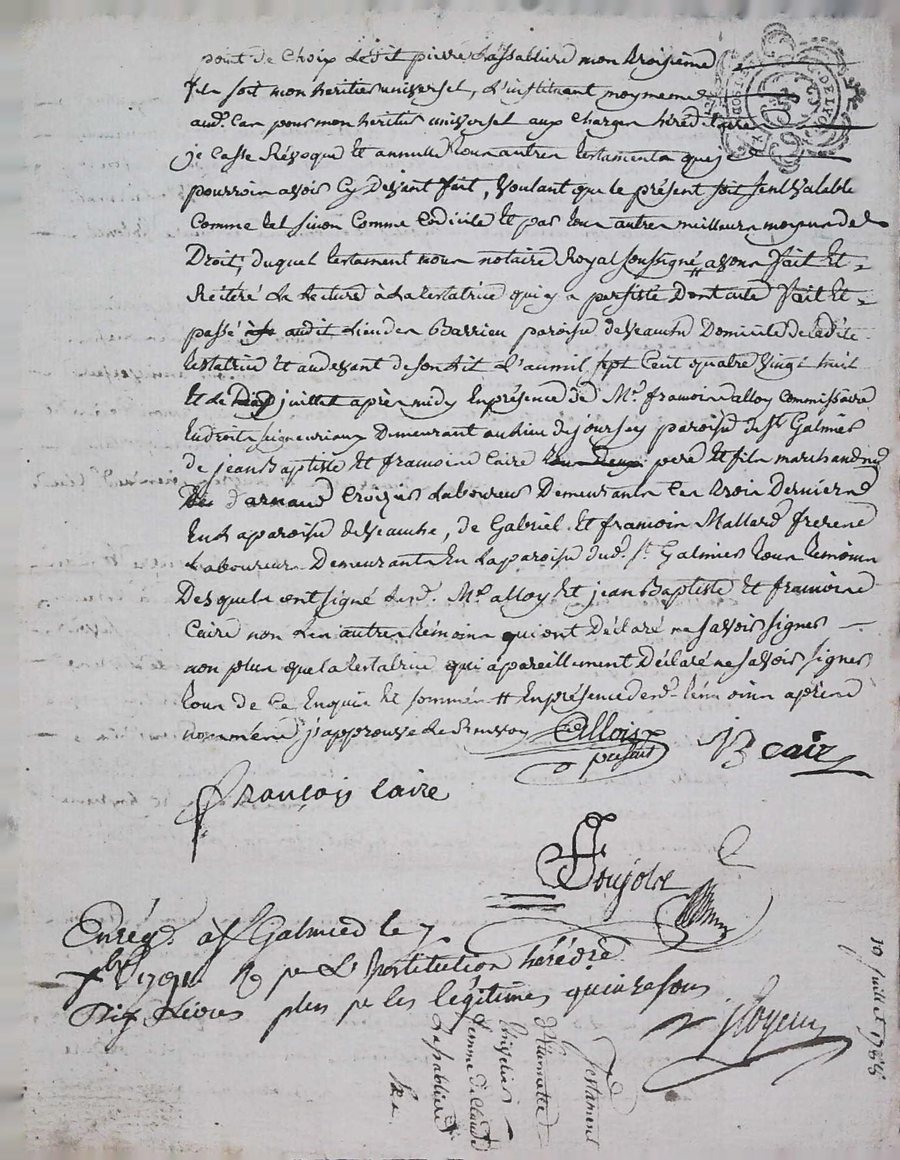 point de choix ledit pierre Lassabliere mon troisieme
fils soit mon heritier universel, L'instituant moymeme
aud. Cas pour mon heritier universel aux charges héréditaires
je Casse Révoque Et annulle tous autres testaments que j
pourrois avoir Cy Devant fait, voulant que le présent soit seul valable
Comme tel sinon Comme Codicile Et par tous autres meilleurs moyens de
Droit; duquel testament nous notaire Royal soussigné avons fait Et
Réiteré La Lecture à La testatrice qui y a persisté Dont acte fait Et
passé audit Lieu des Barrieu paroisse de veauche Domicile de ladite
testatrice Et au devant de son Lit L'an mil sept Cent quatre vingt huit
Et Le dix juillet après midy En présence de Me. françois alloy Commissaire
En droits seigneuriaux Demeurant au lieu de jourсеy paroisse de St Galmier
de jean Baptiste Et françois Caire pere Et fils marchands
d'arnaud Croizier Laboureur Demeurants Les trois Derniers
En La paroisse de veauche, de Gabriel Et françois Mallard freres
Laboureurs Demeurants En La paroisse dud. St. Galmier tous temoins
Desquels ont signé led. Me alloy Et jean Baptiste Et françois
Caire non Les autres témoins qui ont Déclaré ne savoir signer
non plus que la testatrice qui a pareillement Déclaré ne savoir signer
tous de Ce Enquis Et sommés # En présence desd. témoins après
nommés j'approuve Le Renvoy Allois JB cair
present
françois Caire
Enrég. a St Galmier le 7
Rç pr L'Institution hérédre
Dix Livres plus pr les légitimes quinze sous
10 juillet 1788
Testament
d'
Croizier
femme de Claude
Lassabliere